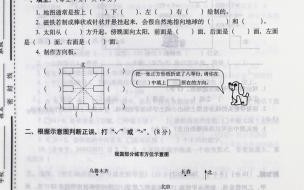 1. 地图通常是按上（ ）下（ ），左（ ）右（ ）绘制的。
2. 磁铁若制成棒状或针状并悬挂起来，会很自然地指向地球的（ ）和（ ）。
3. 太阳从（ ）方升起，傍晚面向太阳，前面是（ ）面，后面是（ ）面，左面是（ ）面，右面是（ ）面。
4. 制作方向板。
北
把一张正方形纸折成了八等份，请你在（ ）中填上所在的方向。
二、根据示意图判断正误。打“√”或“×”。（8分）
我国部分城市方位示意图
乌鲁木齐
长春
北
北京
密封线